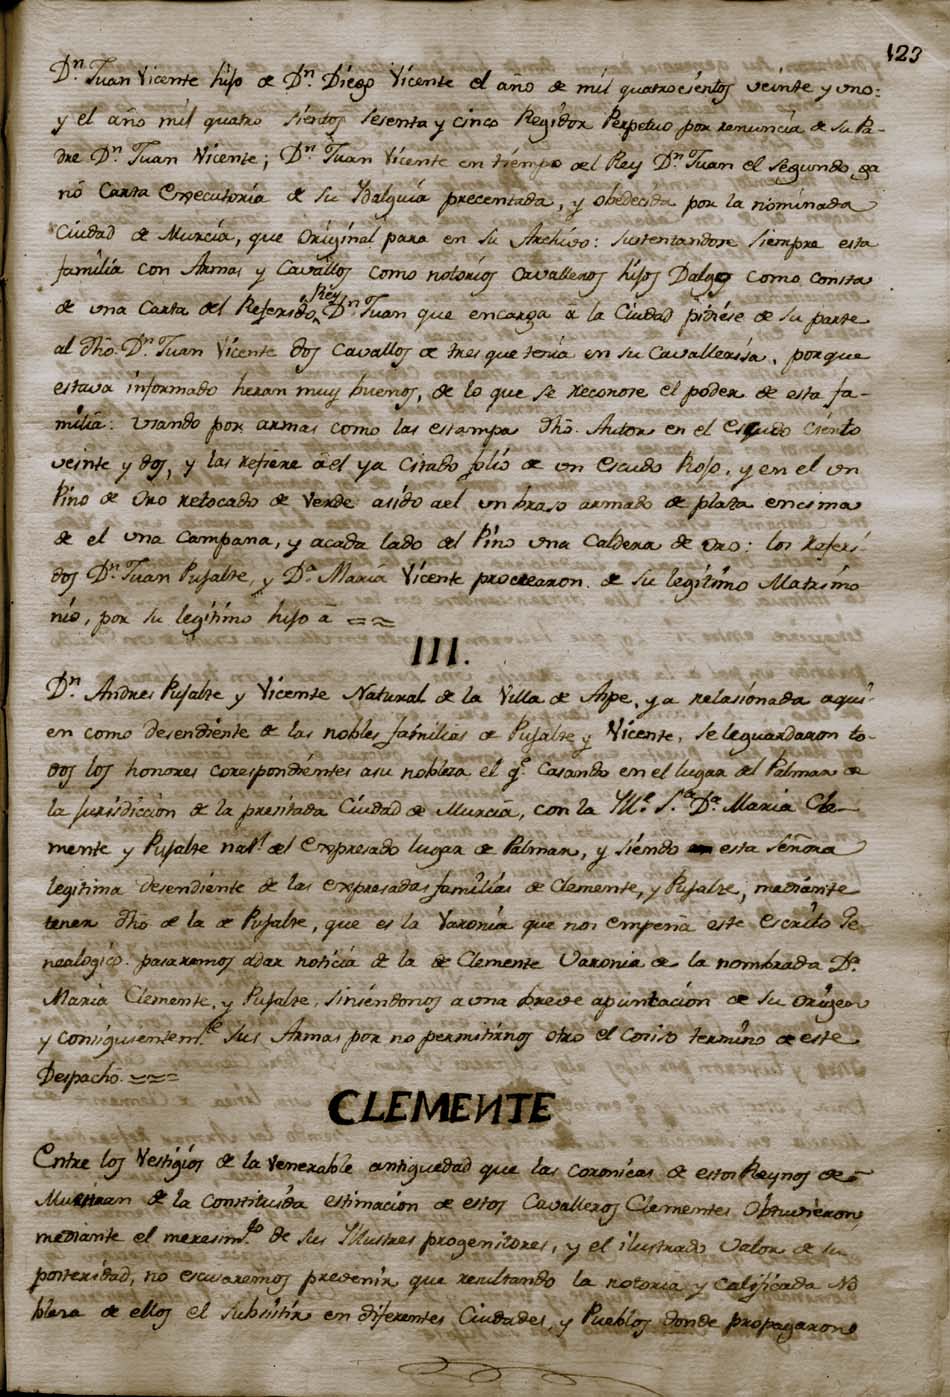 123
Dn. Juan Vicente hijo de Dn. Diego Vicente el año de mil quatrocientos veinte y uno:
y el año mil quatro sientos sesenta y cinco Regidor Perpetuo por renuncia de su Pa-
dre Dn. Juan Vicente; Dn. Juan Vicente en tiempo del Rey Dn. Juan el segundo ga
nó Carta Executoria de su Ydalguia precentada, y obedecida por la nominada
Ciudad de Murcia, que Original para en su Archivo: sustentandose siempre esta
familia con Armas y Cavallos como notorios Cavalleros hijos Dalgo como consta
de una Carta del Referido Rey Dn. Juan que encarga â la Ciudad pidiese de su parte
al dho. Dn. Juan Vicente dos Cavallos de tres que tenia en su Cavallerisa, porque
estava informado heran muy buenos, de lo que se reconose el poder de esta fa-
milia: usando por armas como las estampa dho. Autor en el escudo ciento
veinte y dos, y las refiere âel ya citado folio de un escudo Rojo, y en el un
Pino de Oro retocado de Verde asido ael un braso armado de plata encima
de el una Campana, y acada lado del Pino una Caldera de Oro: los referi-
dos Dn. Juan Pujalte, y Da. Maria Vicente procrearon de su legitimo Matrimo
nio, por su legitimo hijo â ==
III.
Dn. Andres Pujalte y Vicente Natural de la Villa de Aspe, ya relasionada aqui-
en como desendiente de las nobles familias de Pujalte y Vicente, se leguardaron to-
dos los honores corespondientes asu nobleza el qe. Casando en el lugar del Palmar de
la jurisdiccion de la presitada Ciudad de Murcia, con la Yll.e S.ra Da. Maria Cle-
mente y Pujalte nat.l del Expresado lugar de Palmar, y siendo esta Señora
legitima desendiente de las expresadas familias de Clemente, y Pujalte, mediante
tener dho de la de Pujalte, que es la Varonia que nos empeña este escrito Ge-
nealogico. pasaremos adar noticia de la de Clemente Varonia de la nombrada Da.
Maria Clemente, y Pujalte, siniendonos a una breve apuntacion de su Origen
y consiguientem.te sus Armas por no permitirnos otro el Corito termino de este
Despacho. ===
CLEMENTE
Entre los Vestigios de la Venerable antiguedad que las coronicas de estos Reynos de-
Muestran de la Constituida estimacion de estos Cavalleros Clementes Obtuvieron,
mediante el meresim.to de sus Yllustres progenitores, y el ilustrado valor de su
posteridad, no escusaremos prevenir que resultando la notoria y calificada No
bleza de ellos el subsistir en diferentes Ciudades, y Pueblos donde propagaron